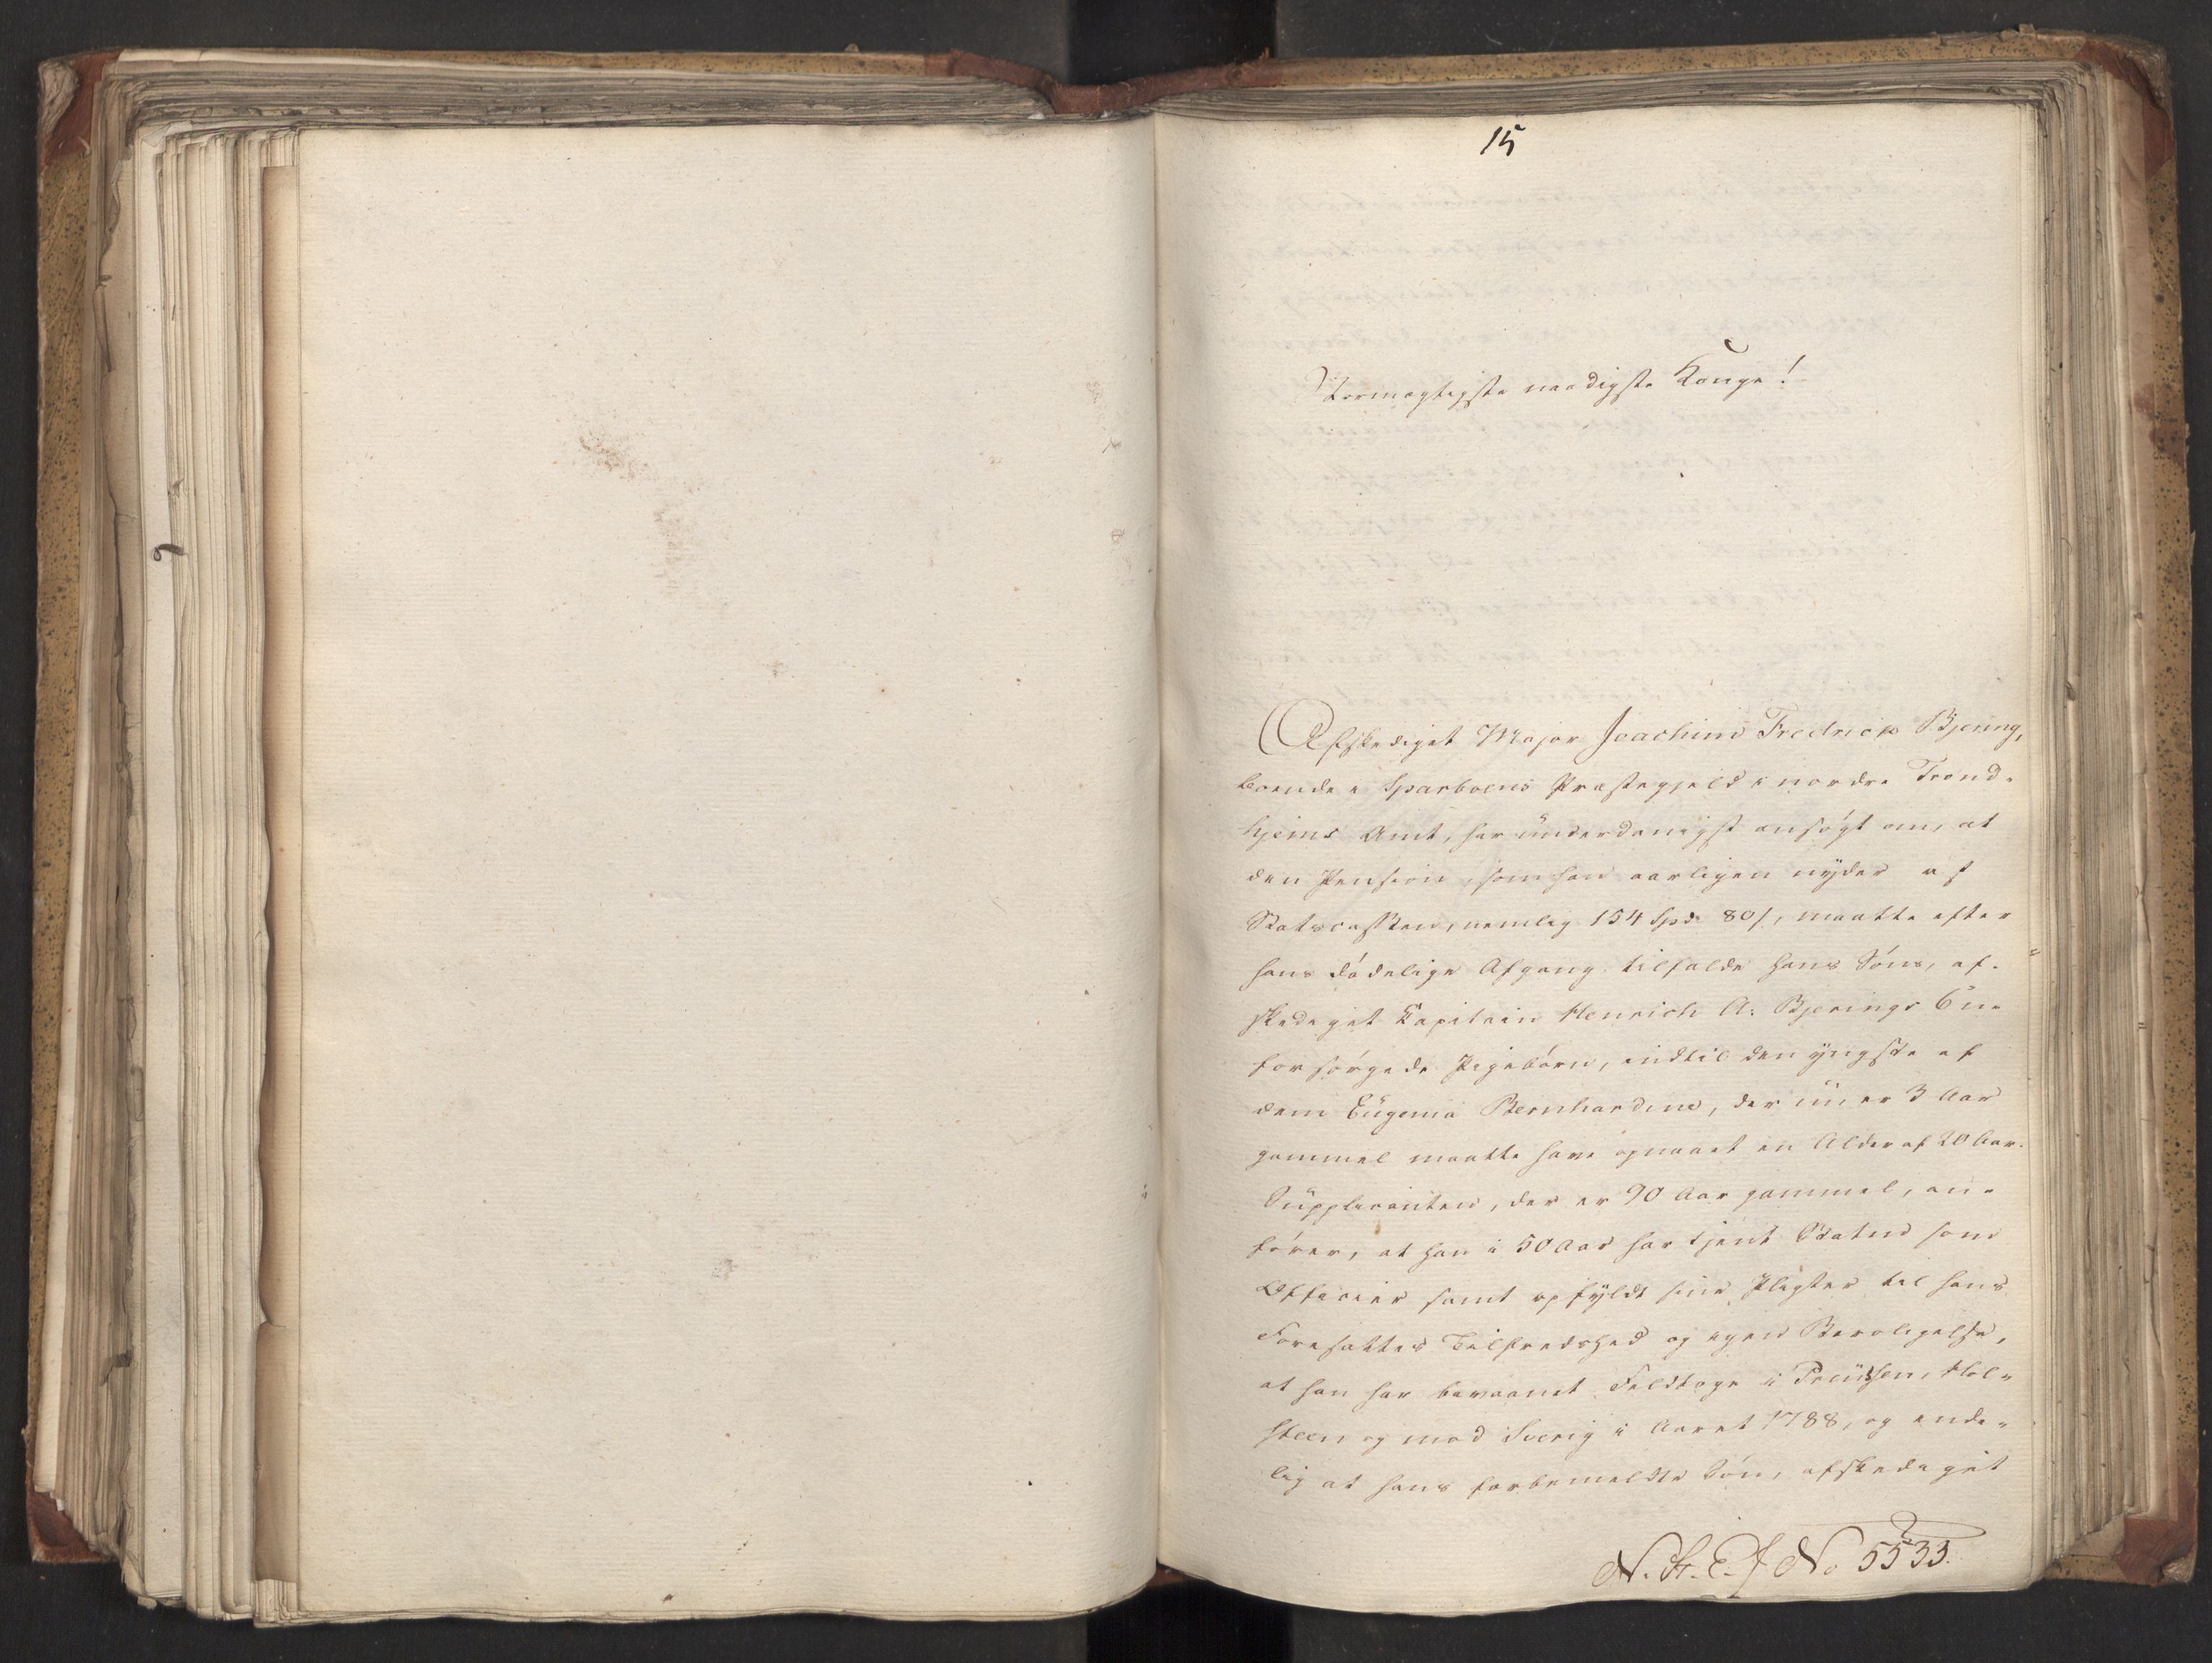 15
Stormægtigste naadigste Konge!
Afskediget Major Joachim Fredrick Bjering,
boende i Sparboens Præstegjeld i nordre Trond-
hjems Amt, har ünderdanigst ansögt om, at
den Pension, som han aarligen nÿder af
Statscassen, nemlig 154 Spd. 80 /, maatte efter
hans dödelige Afgang tilfalde hans Söns, af-
skediget Capitain Henrich A. Bjerings 6 üe
forsörgede Pigebörn, indtil den ÿngste af
dem Eügenia Bernhardine, der nü er 3 Aar
gammel maatte have opnaaet en Alder af 20 Aar.
Süpplicanten, der er 90 Aar gammel, an-
förer, at han i 50 Aar har tjent Staten som
Officier samt opfÿldt sine Pligter til hans
Foresattes Tilfredshed og egen Beroligelse,
at han har bivaanet Feldtoge i Preüssen, Hol-
steen og mod Sverig i Aaret 1788, og ende-
lig at hans forbemeldte Sön, afskediget
N. H. E. J No 5535.